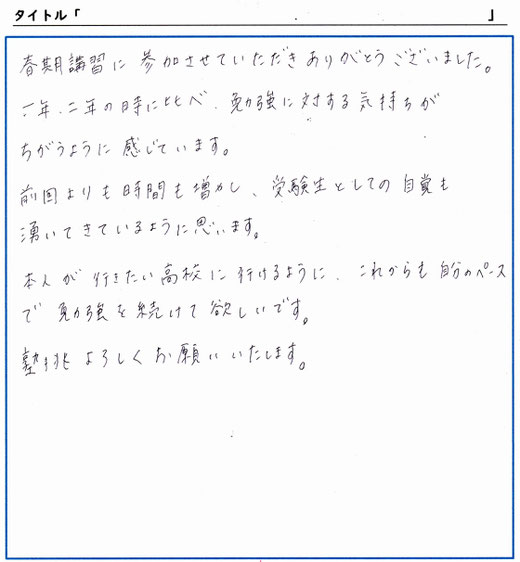 タイトル「 」
春期講習に参加させていただきありがとうございました。
一年、二年の時にくらべ、勉強に対する気持ちが
ちがうように感じています。
前回よりも時間も増かし、受験生としての自覚も
湧いてきているように思います。
本人が行きたい高校に行けるように、これからも自分のペース
で勉強を続けて欲しいです。
よろしくお願いいたします。